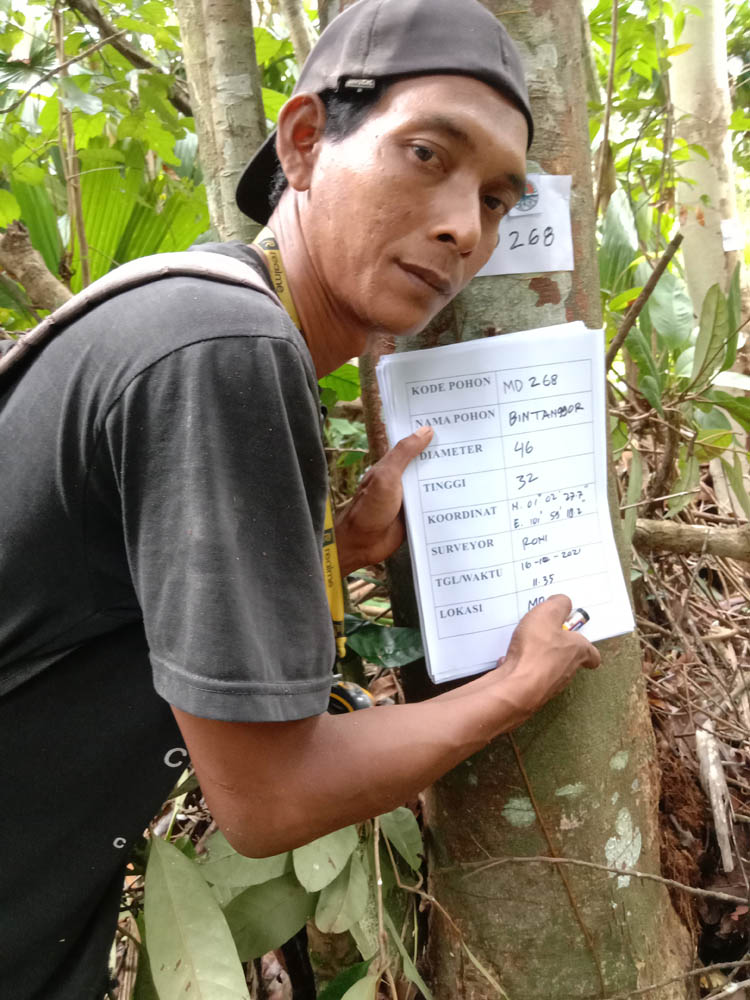 realme
268
KODE POHON MD 268
NAMA POHON BINTANGGOR
DIAMETER 46
TINGGI 32
KOORDINAT N. 01° 02' 27.7"
E. 101° 59' 19.2
SURVEYOR RONI
TGL/WAKTU 2021
11.35
LOKASI MD
realme
C
C